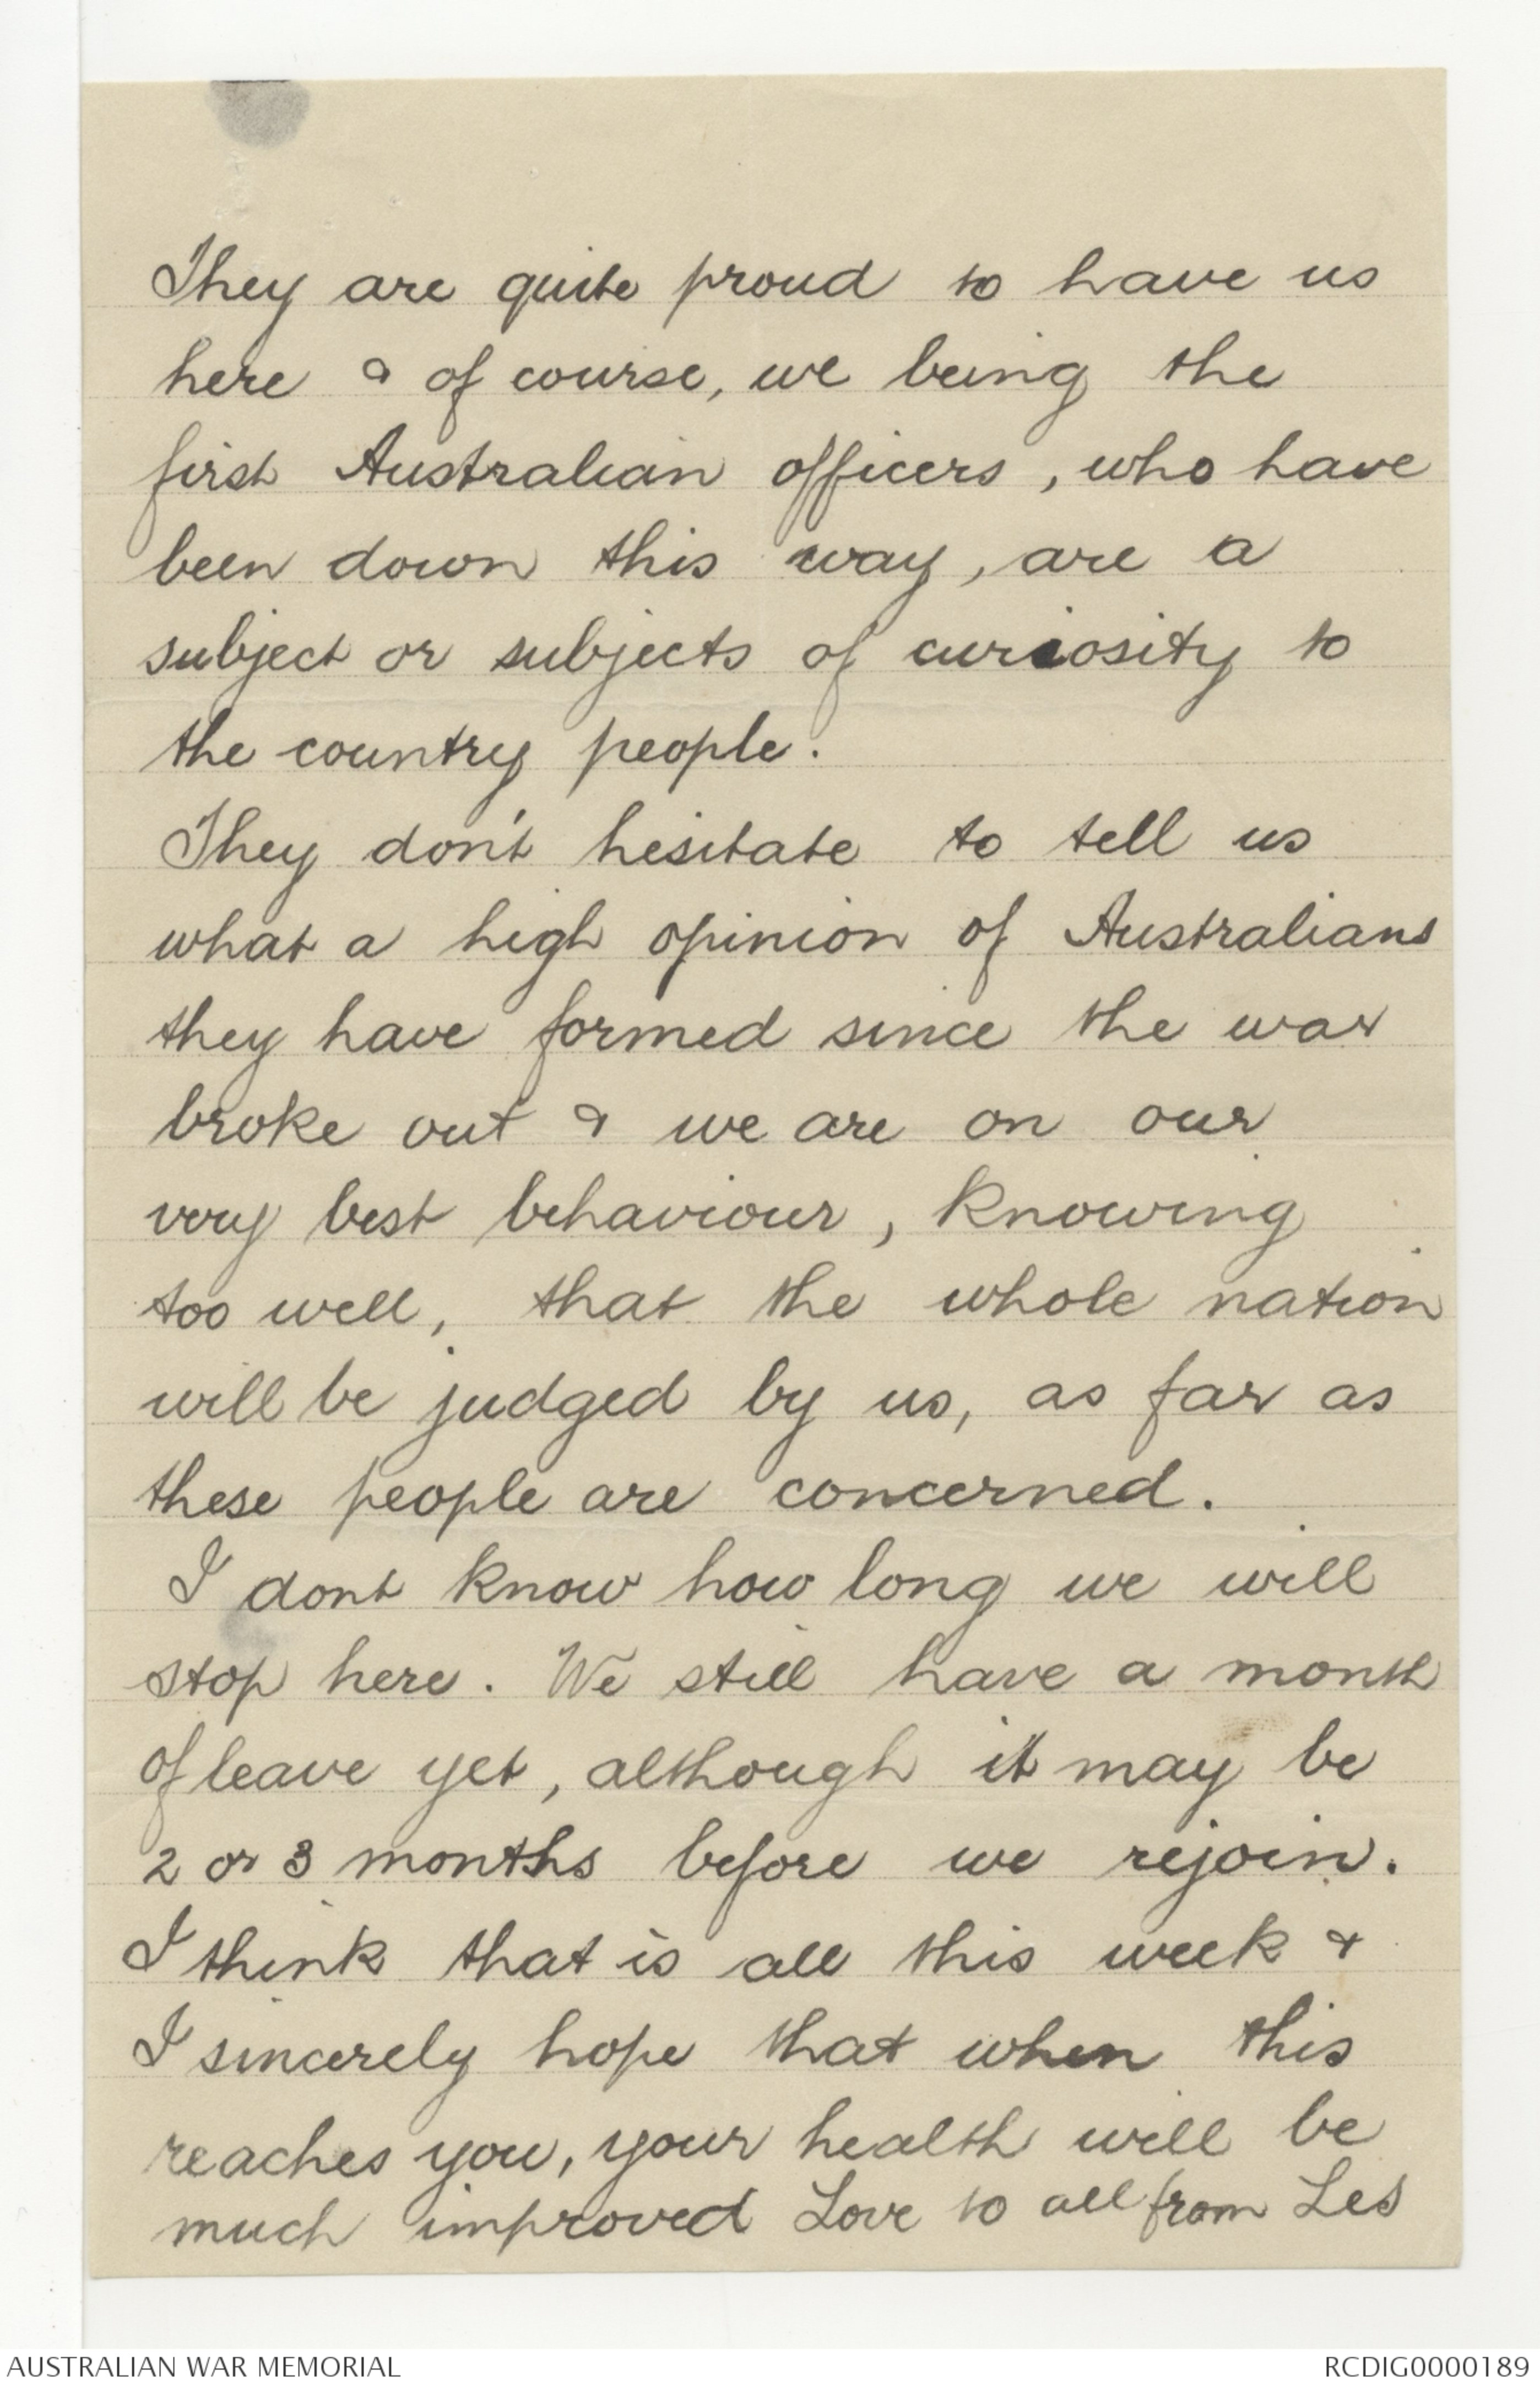 They are quite proud to have us
here & of course, we being the
first Australian officers, who have
been down this way, are a
subject or subjects of curiosity to
the country people.
They don't hesitate to tell us
what a high opinion of Australians
they have formed since the war
broke out & we are on our
very best behaviour, knowing
too well, that the whole nation
will be judged by us, as far as
these people are concerned.
I dont know how long we will
stop here. We still have a month
of leave yet, although it may be
2 or 3 months before we rejoin.
I think that is all this week &
I sincerely hope that when this
reaches you, your health will be
much improved Love to all from Les
AUSTRALIAN WAR MEMORIAL RCDIG0000189